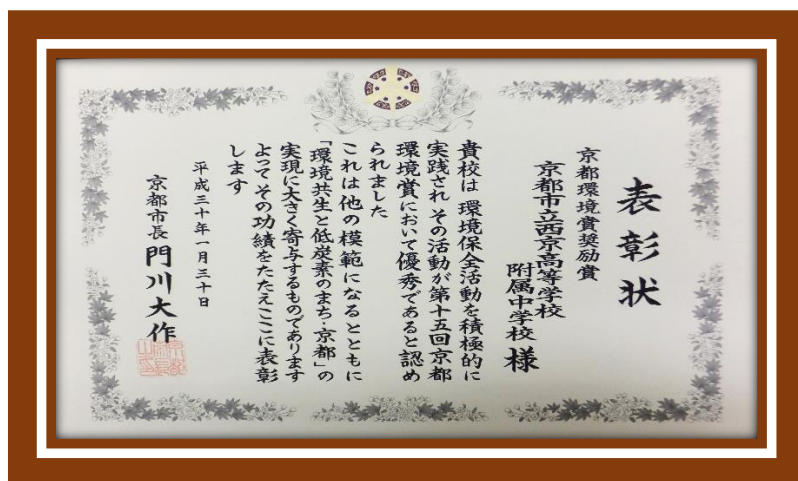 表彰状
京都環境賞奨励賞
京都市立西京高等学校
附属中学校 様
貴校は 環境保全活動を積極的に
実践され その活動が第十五回京都
環境賞において優秀であると認め
られました
これは他の模範になるとともに
「環境共生と低炭素のまち・京都」の
実現に大きく寄与するものであります
よって その功績をたたえここに表彰
します
平成三十年一月三十日
京都市長 門川大作